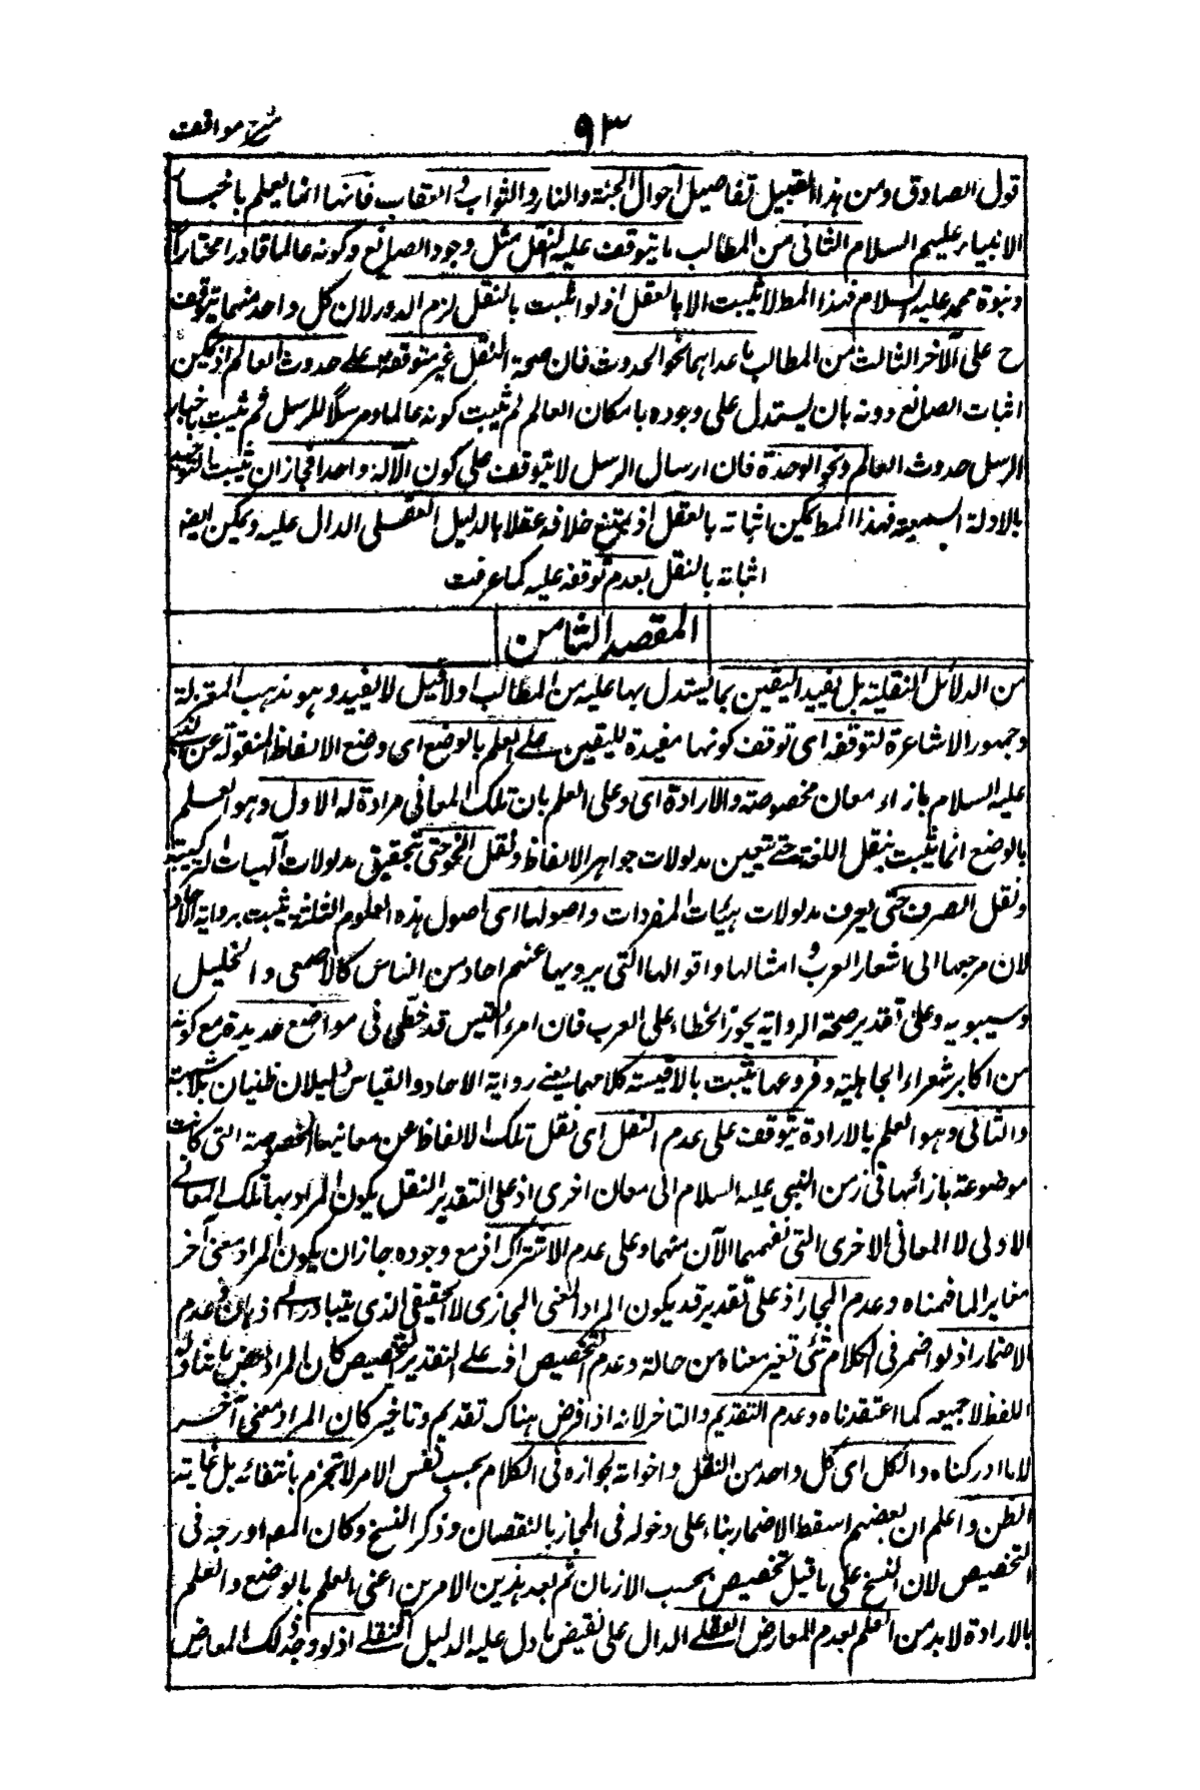 شرح مواقف
٩٣
قول الصادق ومن هذا القبيل تفاصيل احوال الجنة والنار والثواب والعقاب فانها انما يعلم باخبار
الانبياء عليهم السلام الثانى من المطالب ما يتوقف عليه النقل مثل وجود الصانع وكونه عالما قادرا مختارا
ونبوة محمد عليه السلام فهذا المط لا يثبت الا بالعقل اذ لو اثبت بالنقل لزم الدور لان كل واحد منهما يتوقف
ح على الآخر الثالث من المطالب ما عداهما نحو الحدوث فان صحة النقل غير متوقفة على حدوث العالم اذ يمكن
اثبات الصانع دونه بان يستدل على وجوده بامكان العالم ثم يثبت كونه عالما ومرسلا للرسل ثم يثبت باخبار
الرسل حدوث العالم ونحو الوحدة فان ارسال الرسل لا يتوقف على كون الآله واحدا فجاز ان يثبت التوحيد
بالادلة السمعية فهذا المط يمكن اثباته بالعقل اذ يمتنع خلافه عقلا بالدليل العقلى الدال عليه ويمكن ايضا
اثباته بالنقل بعدم توقفه عليه كما عرفت
المقصد الثامن
من الدلائل النقلية بل يفيد اليقين بما يستدل بها عليه من المطالب اولا قيل لا يفيد وهو مذهب المعتزلة
وجمهور الاشاعرة لتوقفه اى توقف كونها مفيدة لليقين على العلم بالوضع اى وضع الالفاظ المنقولة عن النبى
عليه السلام بازاء معان مخصوصة والارادة اى وعلى العلم بان تلك المعانى مرادة له الاول وهو العلم
بالوضع انما يثبت بنقل اللغة حتى يتعين مدلولات جواهر الالفاظ ونقل النحو حتى يتحقيق مدلولات الهيات التركيبية
ونقل الصرف حتى يعرف مدلولات هيئات المفردات واصولها اى اصول هذه العلوم الثلثة يثبت برواية الآحاد
لان مرجعها الى اشعار العرب و امثالها واقوالها التى يرويها عنهم احاد من الناس كالاصمعى و الخليل
وسيبويه وعلى تقدير صحة الرواية يجوز الخطاء على العرب فان امرء القيس قد خطّى فى مواضع عديدة مع كونه
من اكابر شعراء الجاهلية وفروعها يثبت بالاقيسة كلاهما يعنى رواية الاحاد والقياس دليلان ظنيان بلا شبهة
والثانى وهو العلم بالارادة يتوقف على عدم النقل اى نقل تلك الالفاظ عن معانيها المخصوصة التى كانت
موضوعة بازائها فى زمن النبى عليه السلام الى معان اخرى اذ على التقدير النقل يكون المراد بها تلك المعانى
الاولى لا المعانى الاخرى التى نفهمها الآن منها وعلى عدم الاشتراك اذ مع وجوده جاز ان يكون المراد معنى آخر
مغايرا لما فهمناه وعدم المجاز اذ على تقدير قد يكون المراد المعنى المجازى لا الحقيقى الذى يتبادر الى اذهاننا وعدم
الاضمار اذ لو اضمر فى الكلام شئى تغير معناه من حالة وعدم التخصيص اذ على التقدير التخصيص كان المراد بعض ما تناوله
اللفظ لا جميعه كما اعتقدناه وعدم التقديم والتاخر لانه اذا فرض هناك تقديم وتاخير كان المراد معنى آخر
لا ما ادركناه والكل اى كل واحد من النقل واخواته لجوازه فى الكلام بحسب نفس الامر لا تجزم بانتفائه بل غايته
الظن واعلم ان بعضهم اسقط الاضمار بناء على دخوله فى المجاز بالنقصان وذكر النسخ وكان المصه ادرجه فى
التخصيص لان النسخ على ما قيل تخصيص بحسب الازمان ثم بعد هذين الامرين اعنى العلم بالوضع والعلم
بالارادة لا بد من العلم بعدم المعارض العقلے الدال على نقيض ما دل عليه الدليل النقلے اذ لو وجد ذلك المعارض